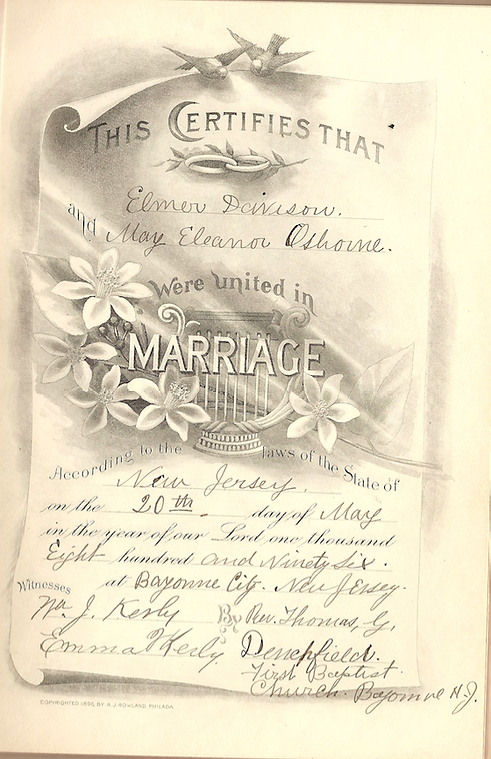 THIS CERTIFIES THAT
Elmer Davison.
and May Eleanor Osborne.
Were united in
MARRIAGE
According to the laws of the State of
New Jersey.
on the 20th. day of May
in the year of our Lord one thousand
Eight hundred and Ninety Six.
Witnesses at Bayonne City. New Jersey.
Wm J. Kerly By Rev. Thomas, G,
Emma Kerly
First Baptist
Church. Bayonne N.J.
COPYRIGHTED 1896, BY N.J. ROWLAND, PHILADA.